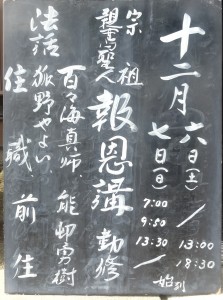 十二月
六日(土)
13:00
18:30
七日(日)
7:00
9:50
13:30
始列
宗祖
親鸞聖人
報恩講 勤修
百々海真師 能邨勇樹
法話 狐野やよい
住職 前住